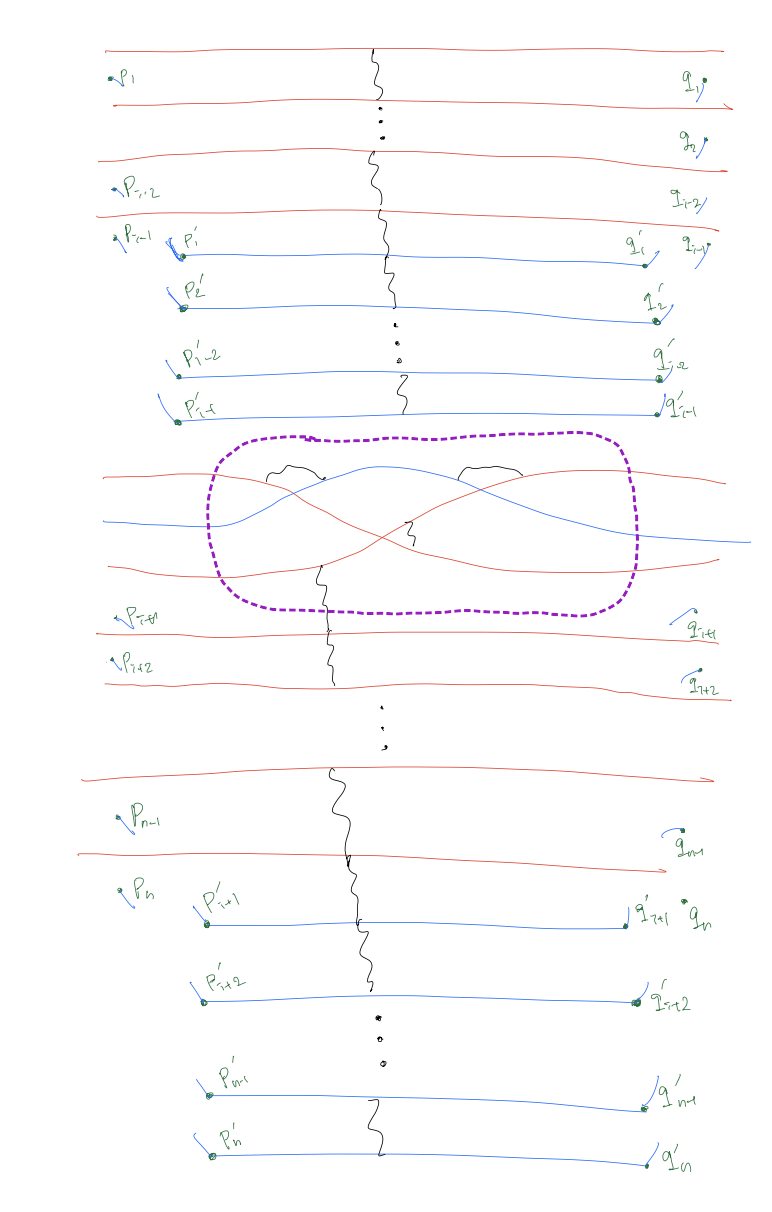 p₁ q₁
q₂
p_{i-2} q_{i-2}
p_{i-1} p'₁ q'₁ q_{i-1}
p'₂ q'₂
p'_{i-2} q'_{i-2}
p'_{i-1} q'_{i-1}
p_{i+1} q_{i+1}
p_{i+2} q_{i+2}
p_{n-1} q_{n-1}
p_n p'_{i+1} q'_{i+1} q_n
p'_{i+2} q'_{i+2}
p'_{n-1} q'_{n-1}
p'_n q'_n